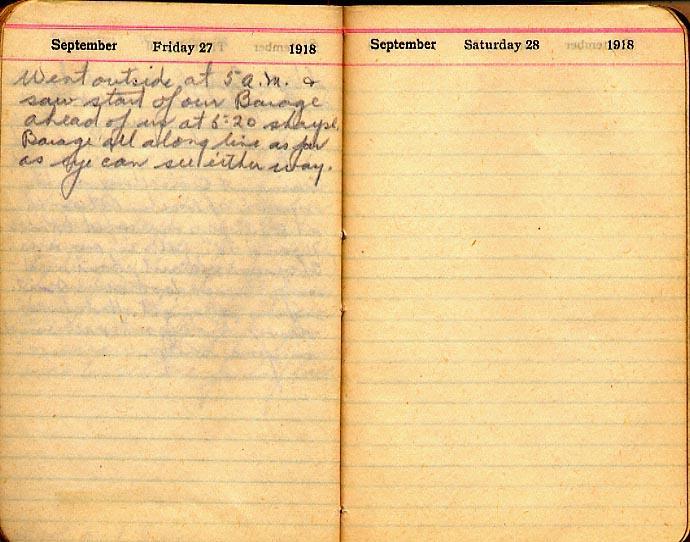 September Friday 27 1918
Went outside at 5 a.m. &
saw start of our Barage
ahead of us at 5:20 sharp.
Barage all along line as far
as eye can see either way.
September Saturday 28 1918